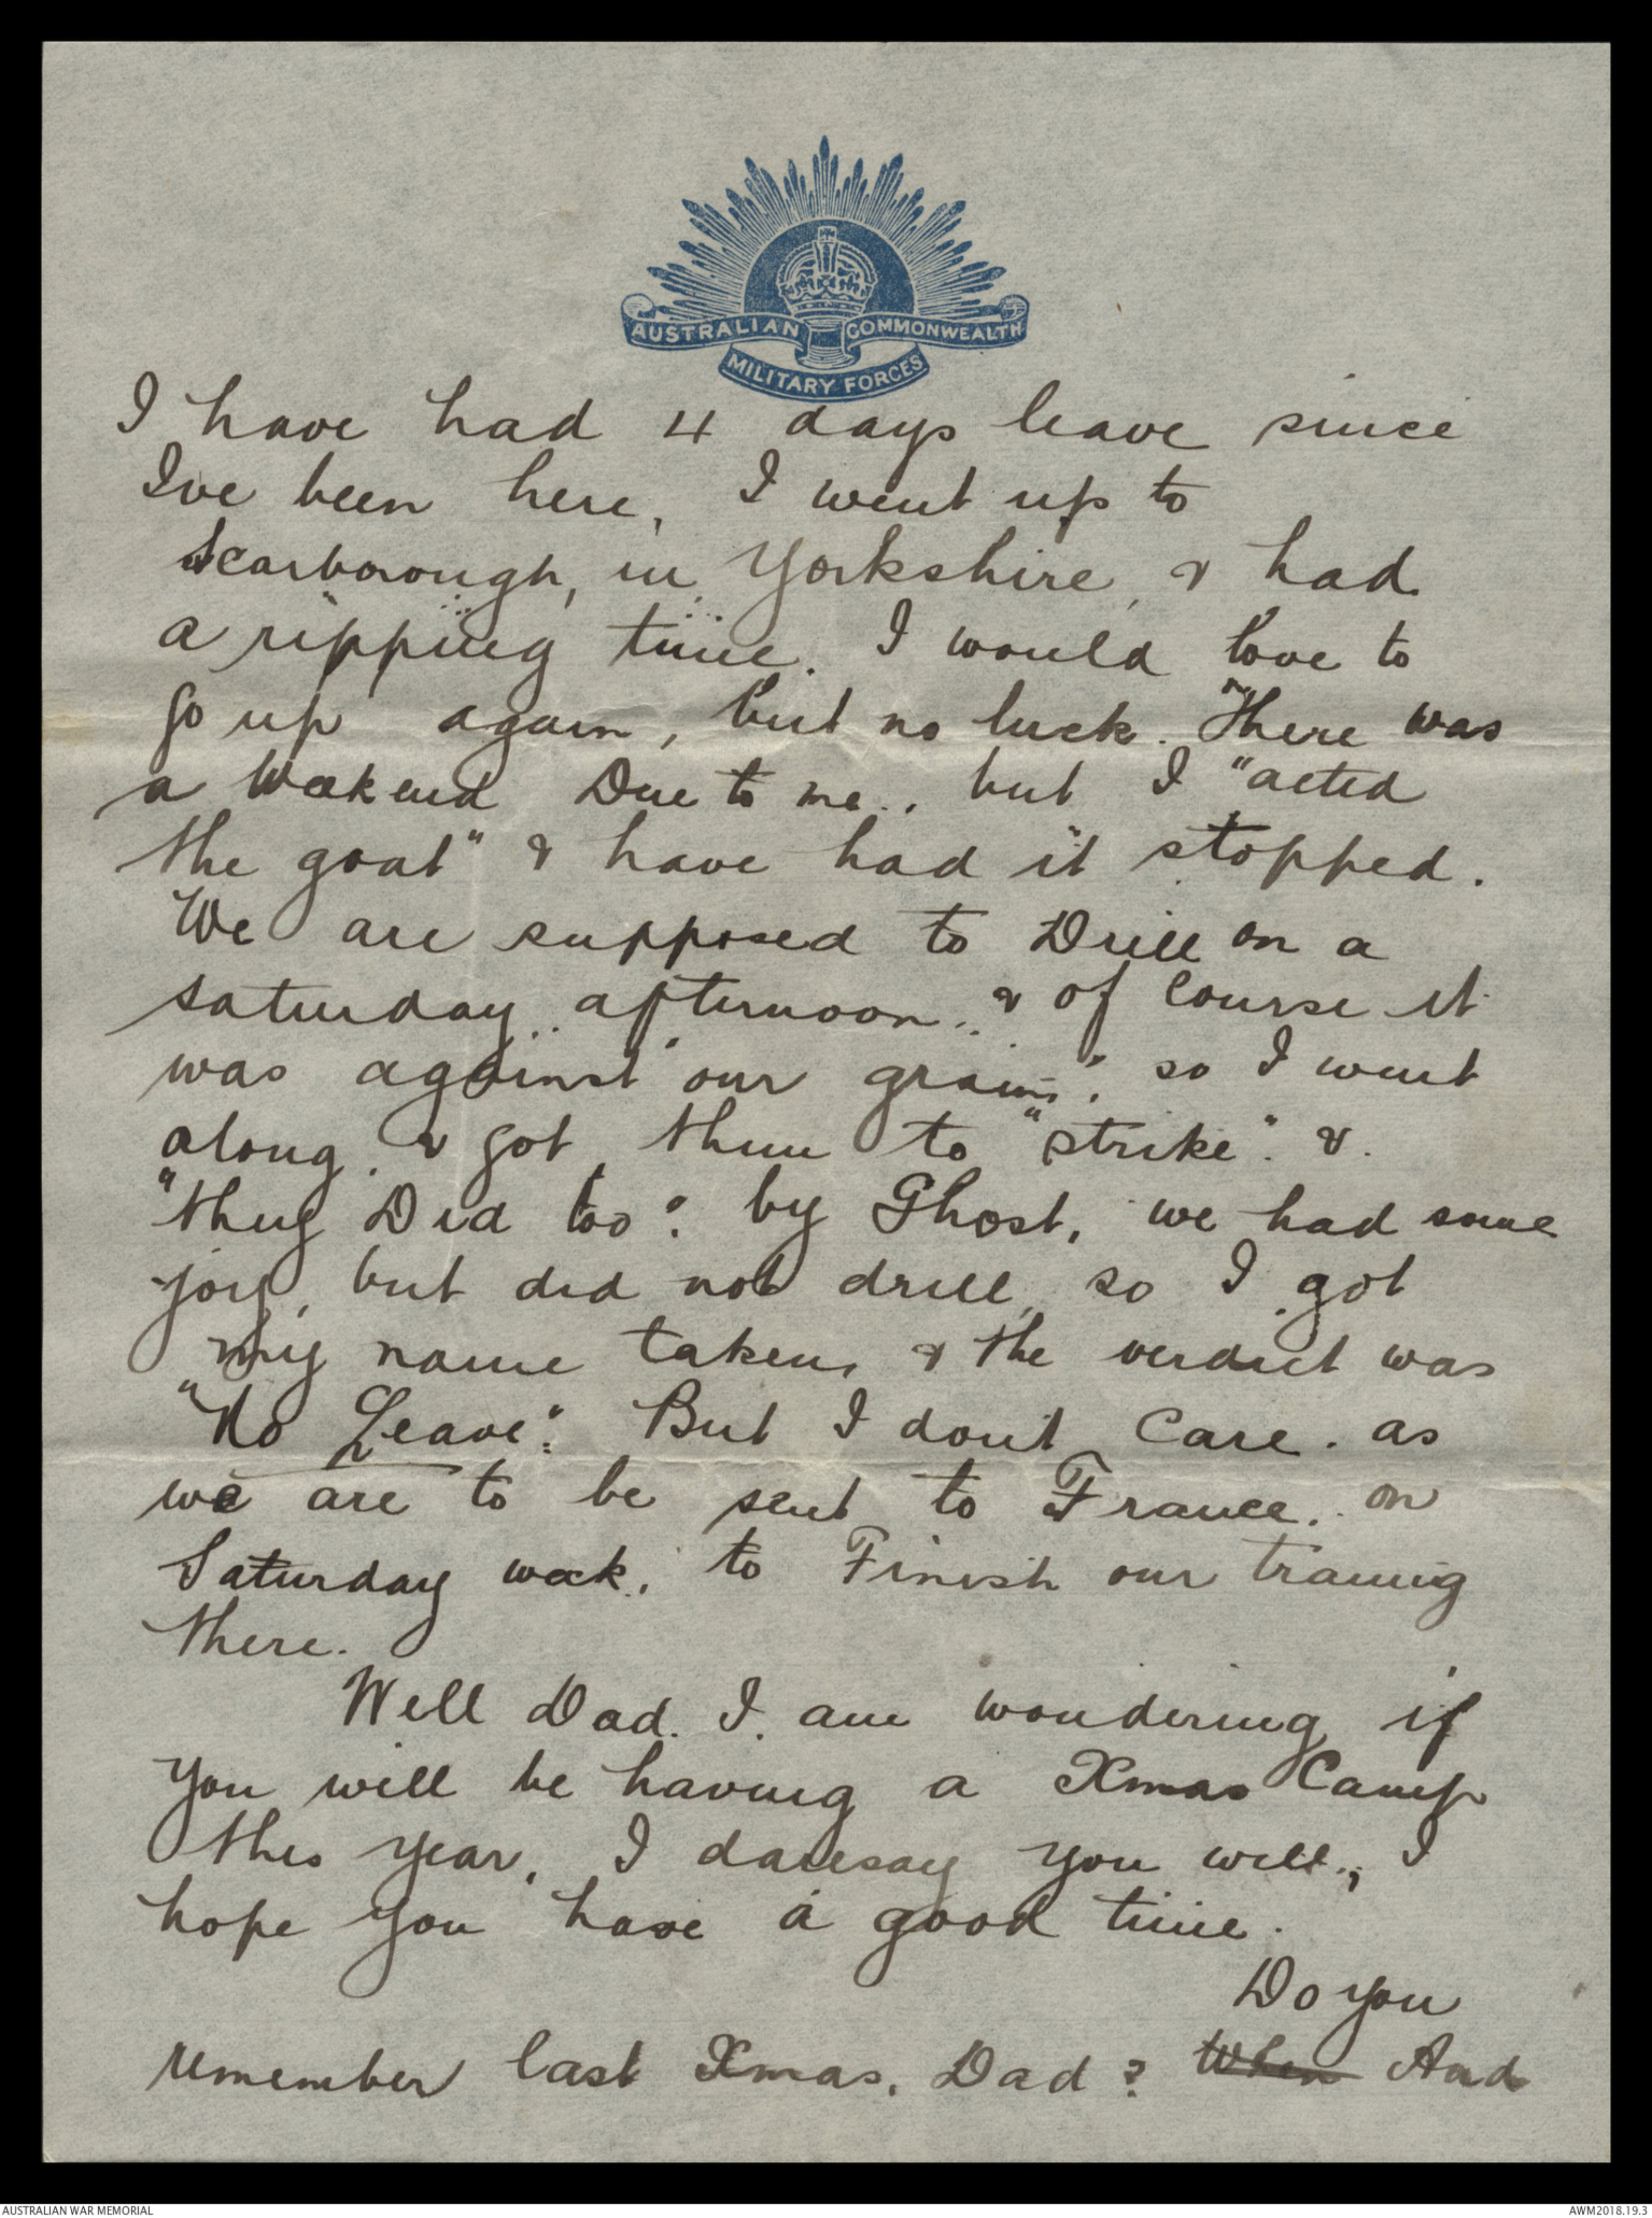 AUSTRALIAN COMMONWEALTH
MILITARY FORCES
I have had 4 days leave since
I've been here, I went up to
Scarborough, in Yorkshire, & had
a ripping time. I would love to
go up again, but no luck. There was
a Weekend Due to me., but I "acted
the goat" & have had it stopped.
We are supposed to Drill on a
saturday afternoon.. & of course it
was against "our grain", so I went
along, & got them to "strike". &.
"they Did too". by Ghost, we had some
joy, but did not drill, so I got
my name taken, & the verdict was
"No Leave". But I don't Care. as
we are to be sent to France. on
Saturday week, to Finish our training
there.
Well Dad. I. am wondering if
you will be having a Xmas Camp
this year, I daresay you will., I
hope you have a good time.
Do you
remember last Xmas, Dad? When And
AUSTRALIAN WAR MEMORIAL
AWM2018.19.3